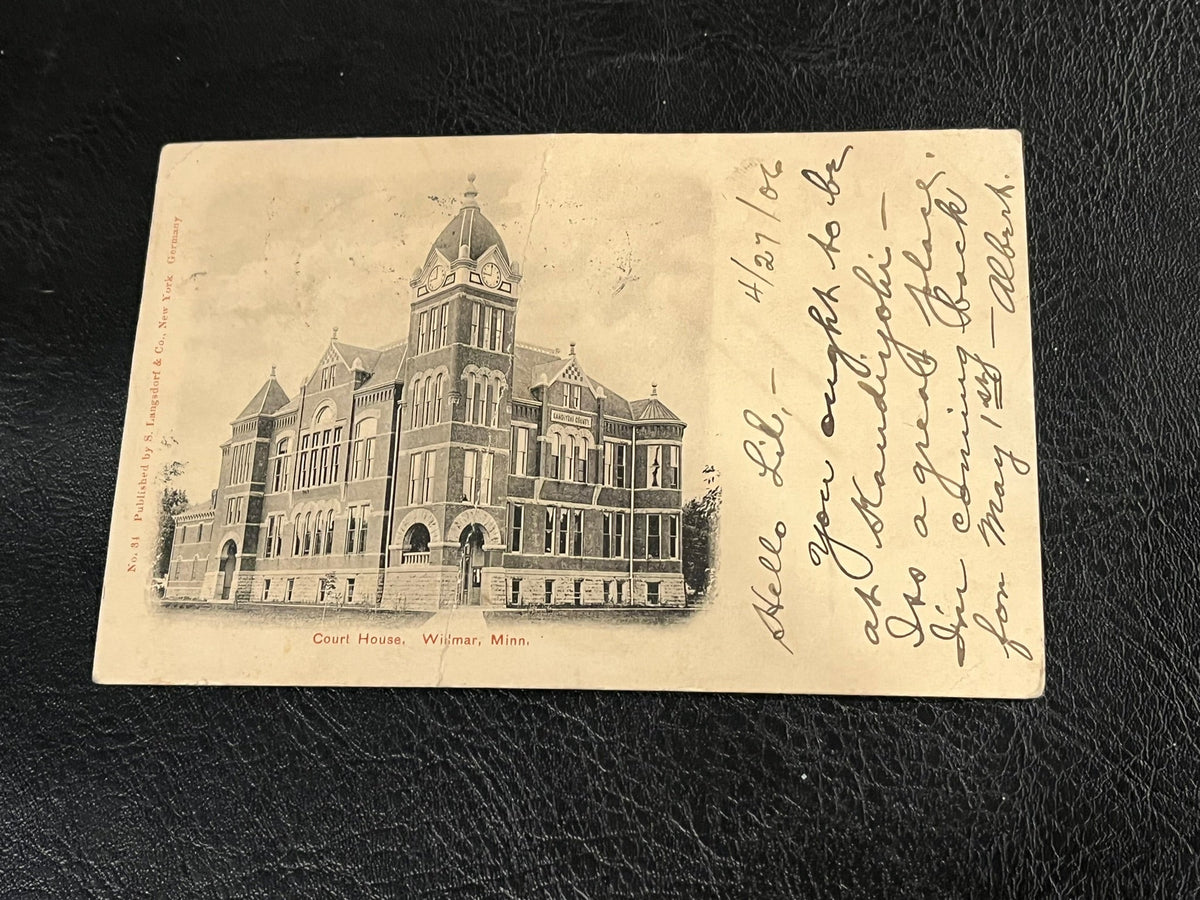 No. 34 Published by S. Langsdorf & Co., New York Germany
KANDIYOHI COUNTY
Court House, Willmar, Minn.
4/27/06
Hello Lil, —
You ought to be
at Kandiyohi —
Its a great place.
I'm coming back
for May 1st — Albert.